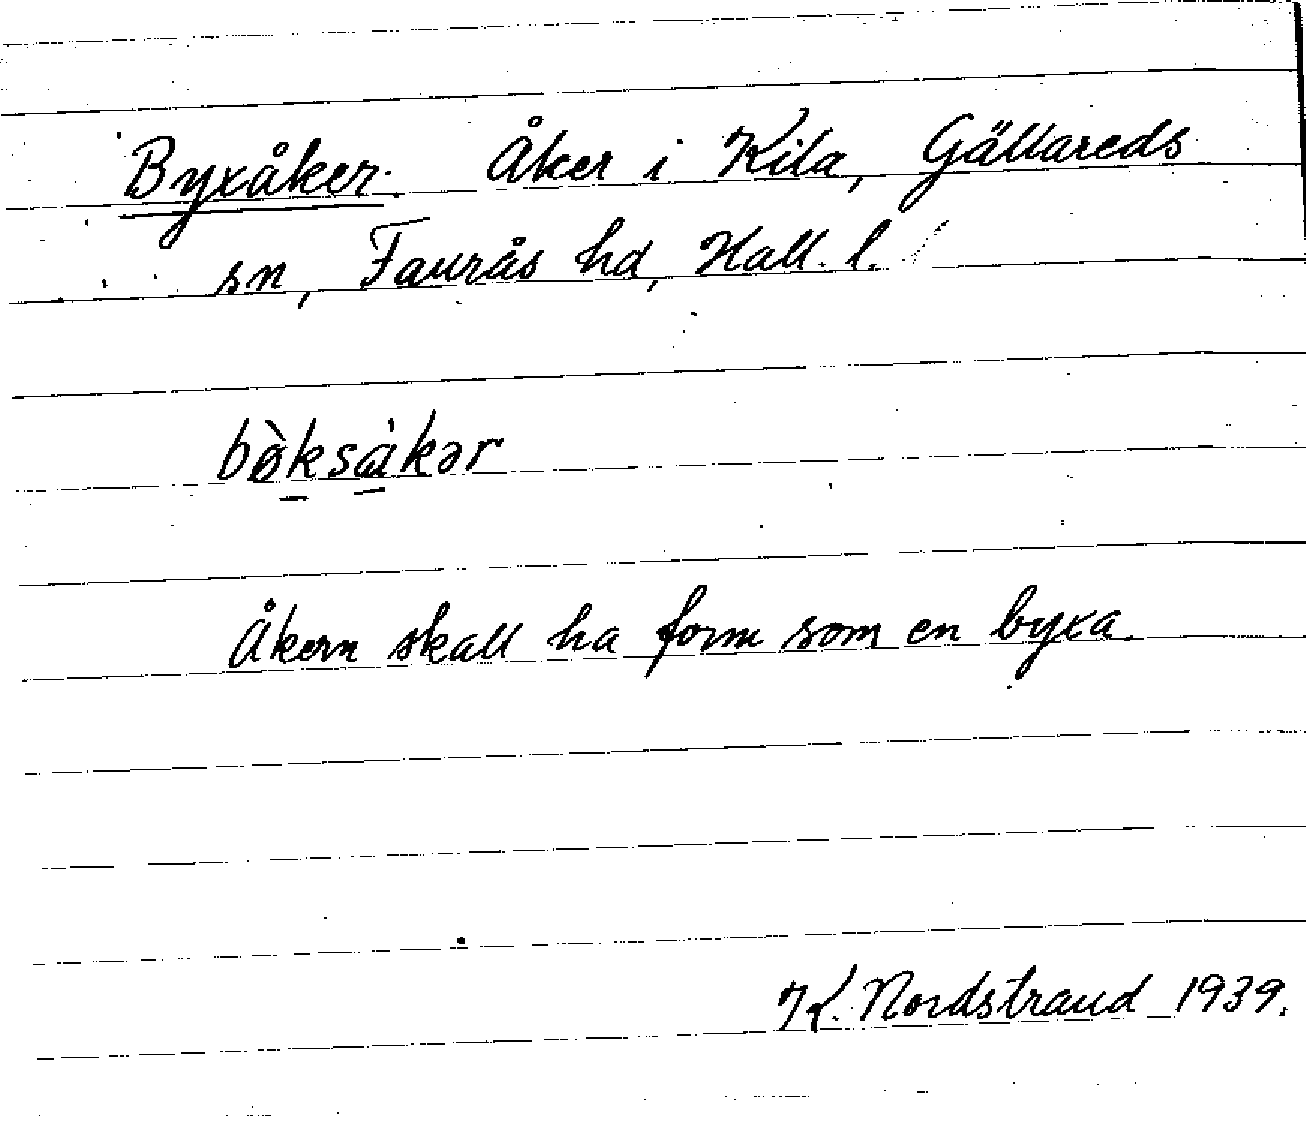 Byxåker. Åker i Kila, Gällareds
sn, Faurås hd, Hall. l.
bø̀ksåkər
Åkern skall ha form som en byxa.
K. Nordstrand 1939.